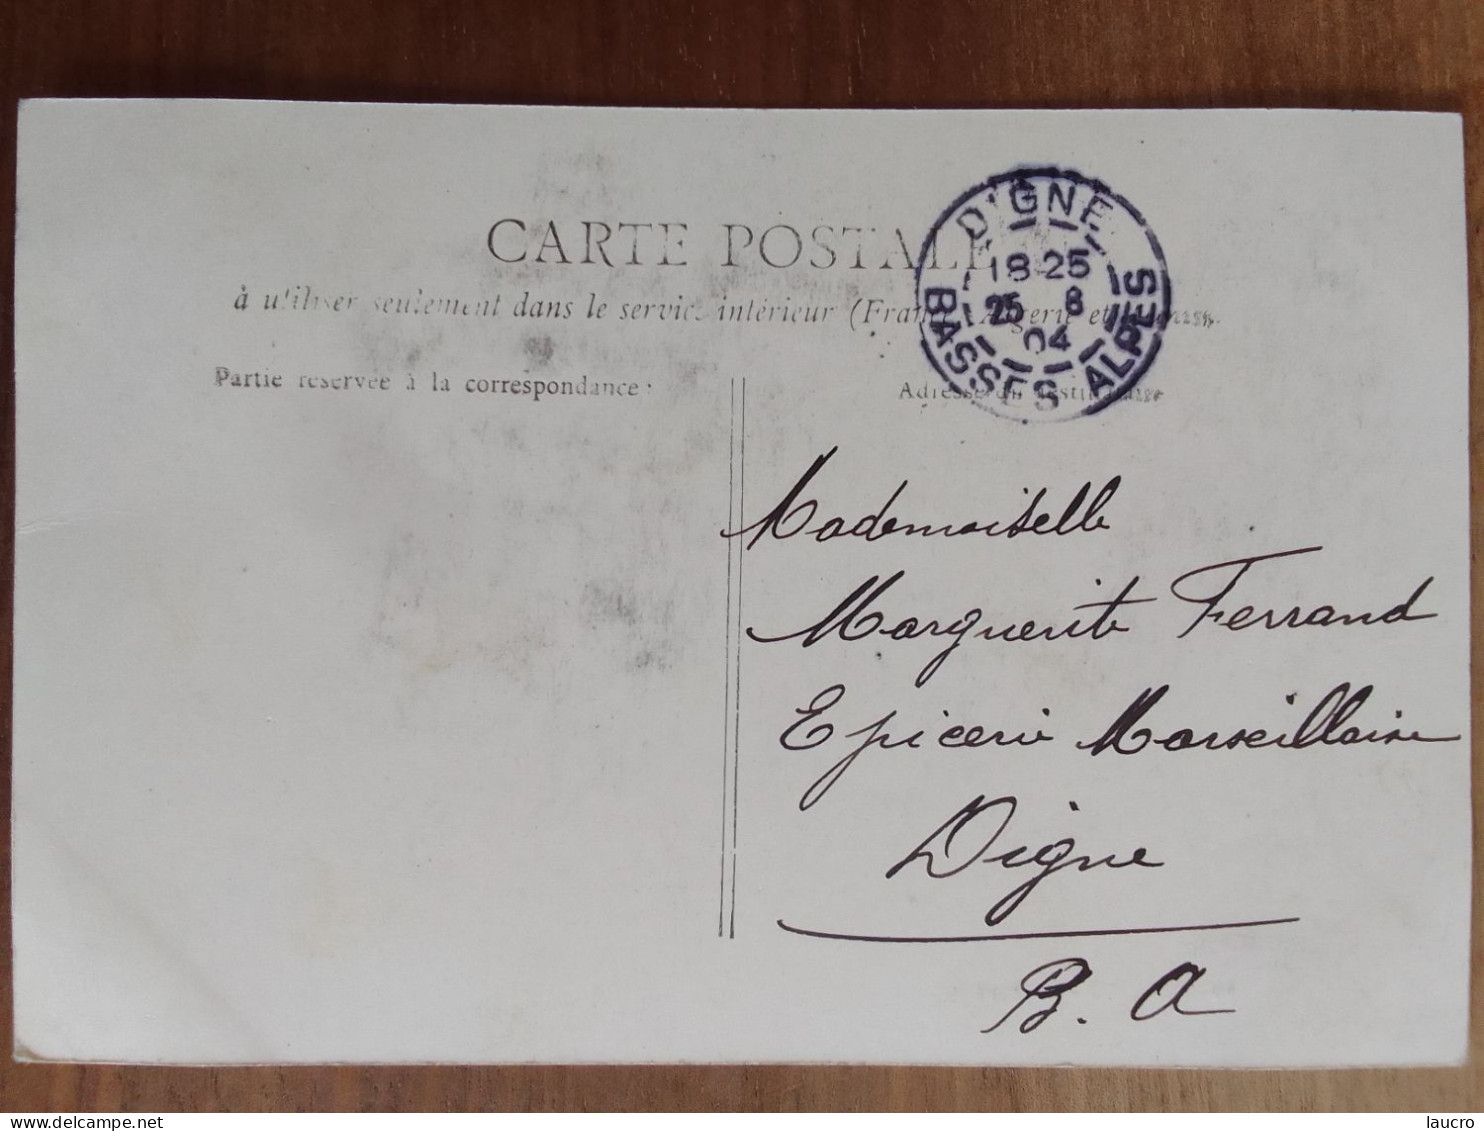 CARTE POSTALE
à utiliser seulement dans le service intérieur (France, Algérie et
Partie réservée à la correspondance :
Adresse du destinataire
DIGNE
18 25
25 8
04
BASSES ALPES
Mademoiselle
Marguerite Ferrand
Epicerie Marseillaise
Digne
B. A
delcampe.net
laucro